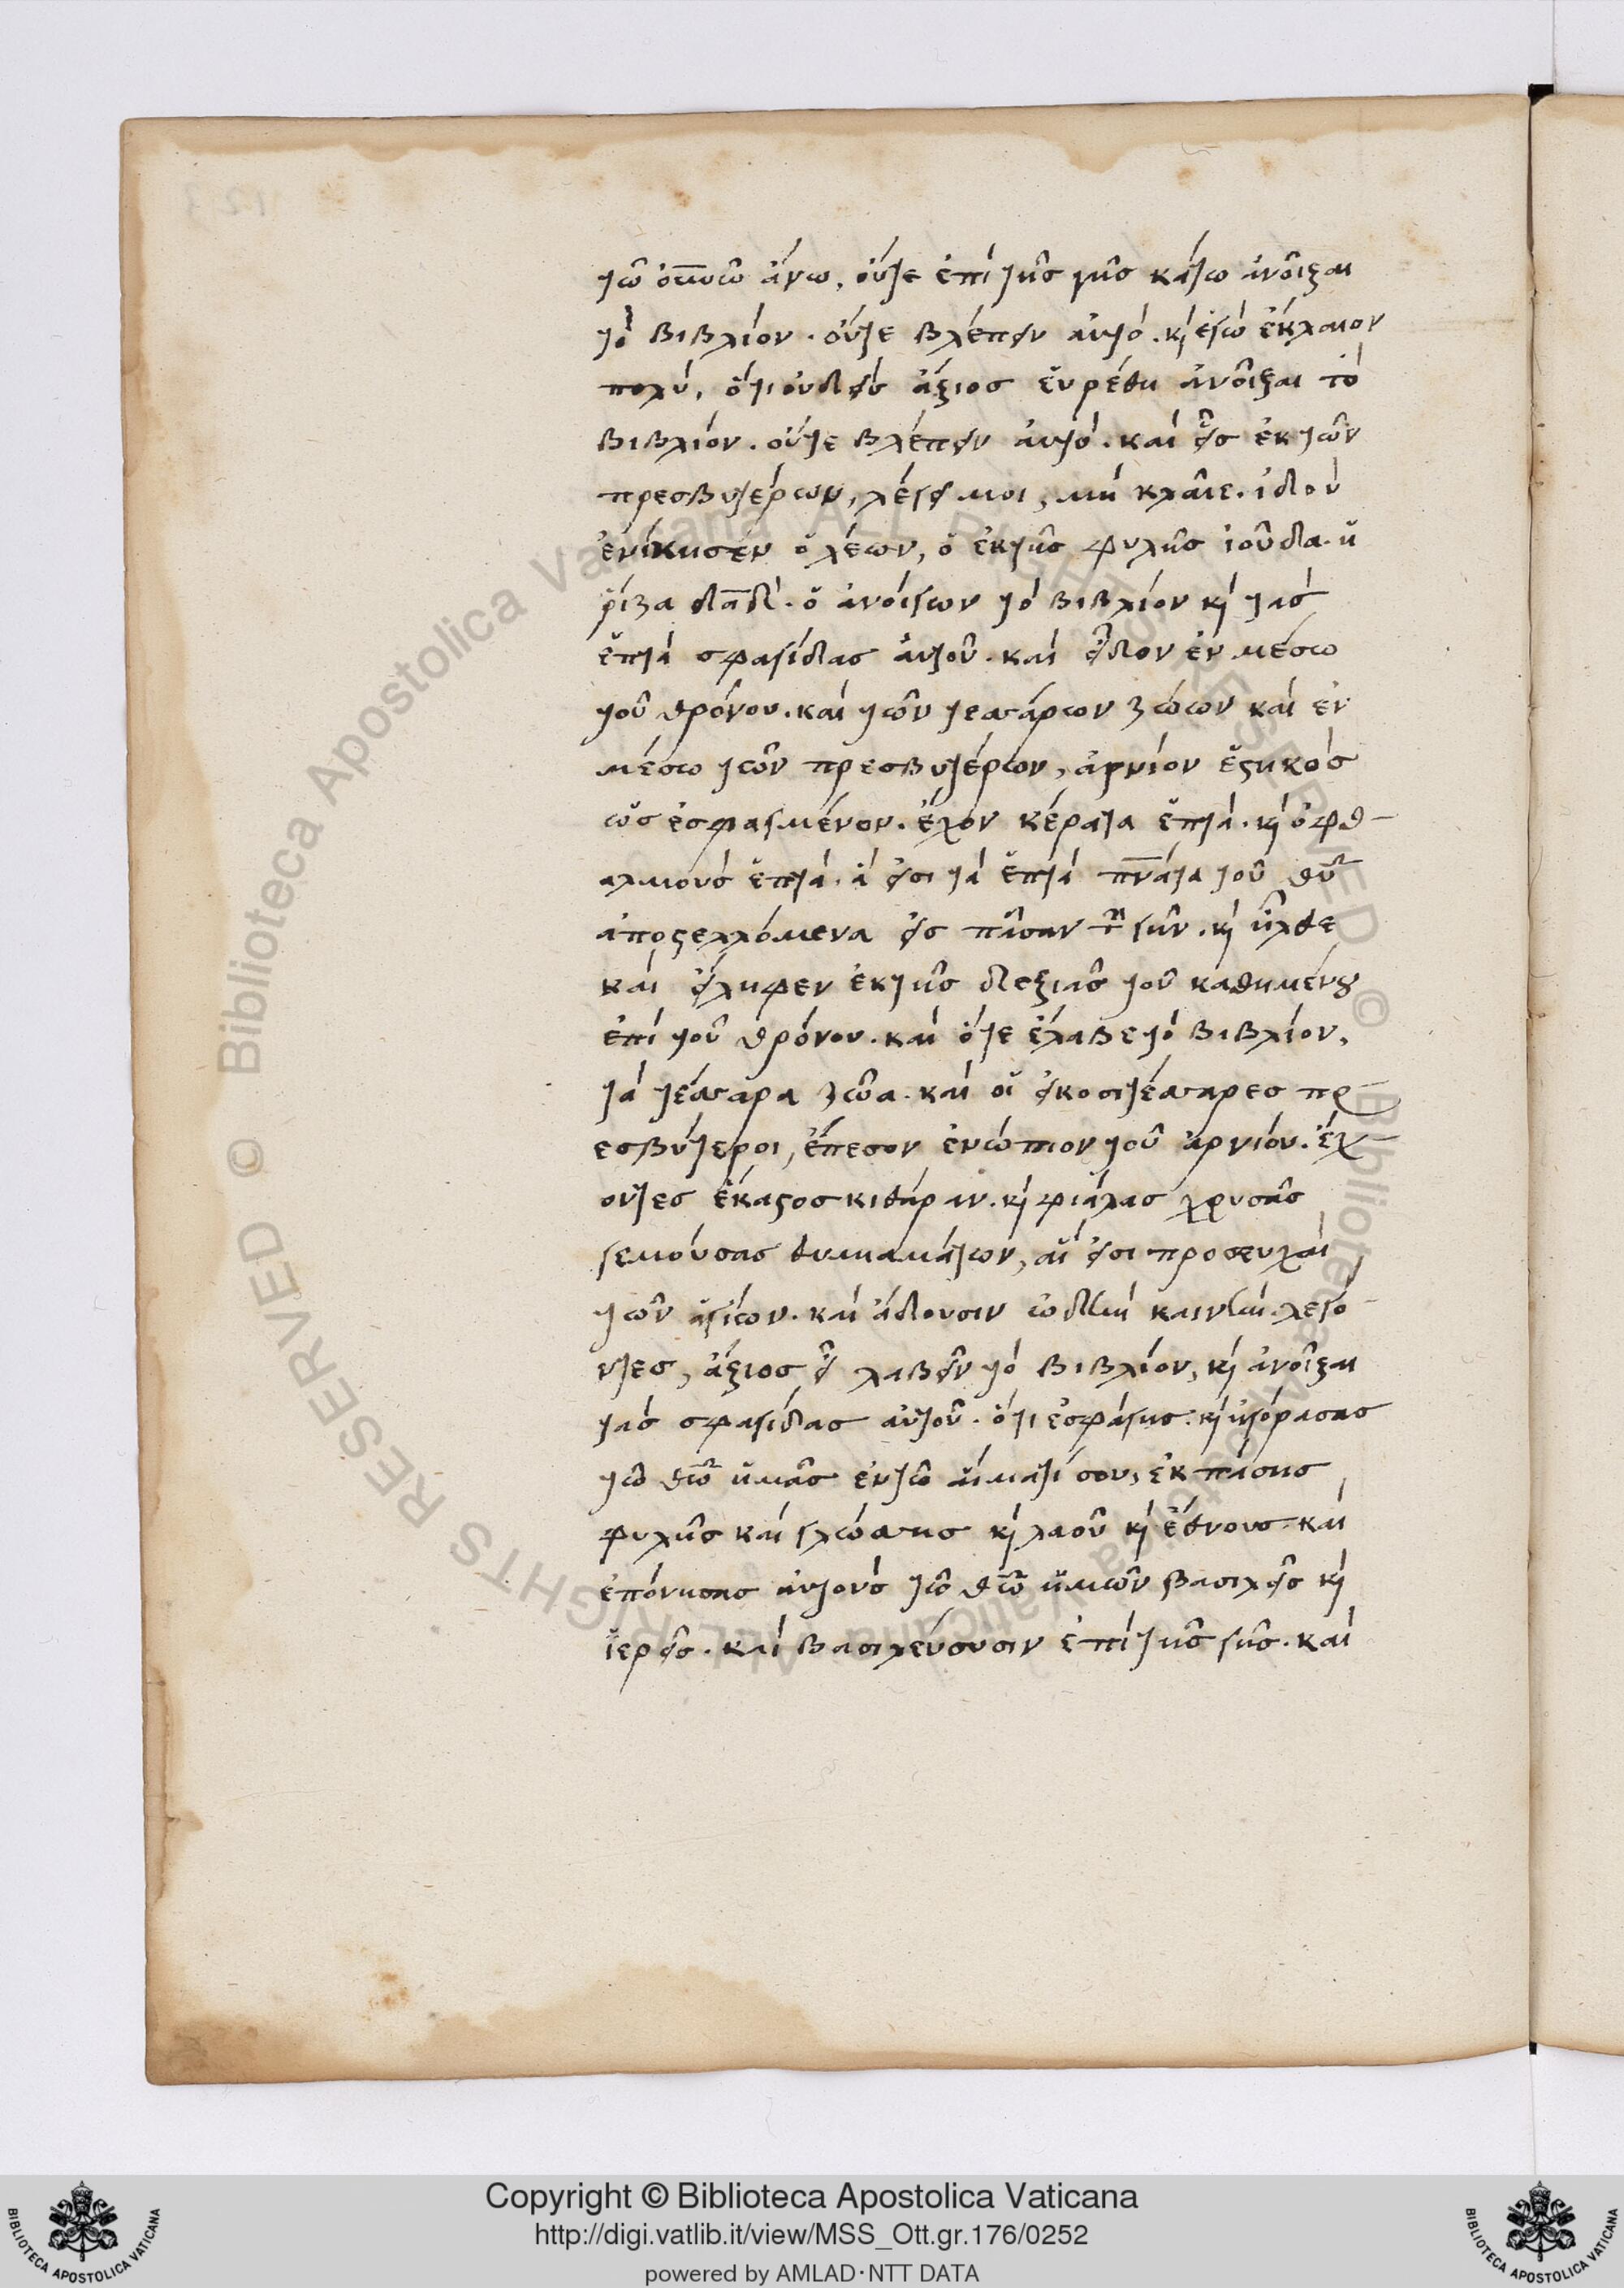 τῶ οὐνῶ ἄνω, οὔτε ἐπὶ τῆς γῆς κάτω ἀνοῖξαι
τὸ βιβλίον. οὔτε βλέπειν αὐτό. κὶ ἐγὼ ἔκλαιον
πολύ, ὅτι οὐδεὶς ἄξιος εὑρέθη ἀνοῖξαι τὸ
βιβλίον. οὔτε βλέπειν αὐτό. καὶ εἷς ἐκ τῶν
πρεσβυτέρων, λέγει μοι, μὴ κλαῖε. ἰδοὺ
ἐνίκησεν ὁ λέων, ὁ ἐκ τῆς φυλῆς ἰοῦδα. ἡ
ῥίζα δαδ. ὁ ἀνοίγων τὸ βιβλίον κὶ τὰς
ἑπτὰ σφραγίδας αὐτοῦ. καὶ εἶδον ἐν μέσω
τοῦ θρόνου. καὶ τῶν τεσσάρων ζώων καὶ ἐν
μέσω τῶν πρεσβυτέρων, ἀρνίον ἑστηκὸς
ὡς ἐσφαγμένον. ἔχον κέρατα ἑπτά. κὶ ὀφθ-
αλμοὺς ἑπτά. ἅ εἰσι τὰ ἑπτὰ πνάτα τοῦ θυ
ἀποστελλόμενα εἰς πᾶσαν τὴν γῆν. κὶ ἦλθε
καὶ εἴληφεν ἐκ τῆς δεξιᾶς τοῦ καθημένου
ἐπὶ τοῦ θρόνου. καὶ ὅτε ἔλαβε τὸ βιβλίον,
τὰ τέσσαρα ζῶα. καὶ οἱ εἰκοσιτέσσαρες πρ-
εσβύτεροι, ἔπεσον ἐνώπιον τοῦ ἀρνίου. ἔχ-
οντες ἕκαστος κιθάραν. κὶ φιάλας χρυσᾶς
γεμούσας θυμιαμάτων, αἵ εἰσι προσευχαὶ
τῶν ἁγίων. καὶ ἄδουσιν ὠδὴν καινὴν λεγό-
ντες, ἄξιος εἶ λαβεῖν τὸ βιβλίον, κὶ ἀνοῖξαι
τὰς σφραγίδας αὐτοῦ. ὅτι ἐσφάγης. κὶ ἠγόρασας
τῶ θῶ ἡμᾶς ἐν τῶ αἵματί σου, ἐκ πάσης
φυλῆς καὶ γλώσσης κὶ λαοῦ κὶ ἔθνους. καὶ
ἐποίησας αὐτοὺς τῶ θῶ ἡμῶν βασιλεῖς κὶ
ἱερεῖς. καὶ βασιλεύσουσιν ἐπὶ τῆς γῆς. καὶ
Copyright © Biblioteca Apostolica Vaticana
http://digi.vatlib.it/view/MSS_Ott.gr.176/0252
powered by AMLAD·NTT DATA